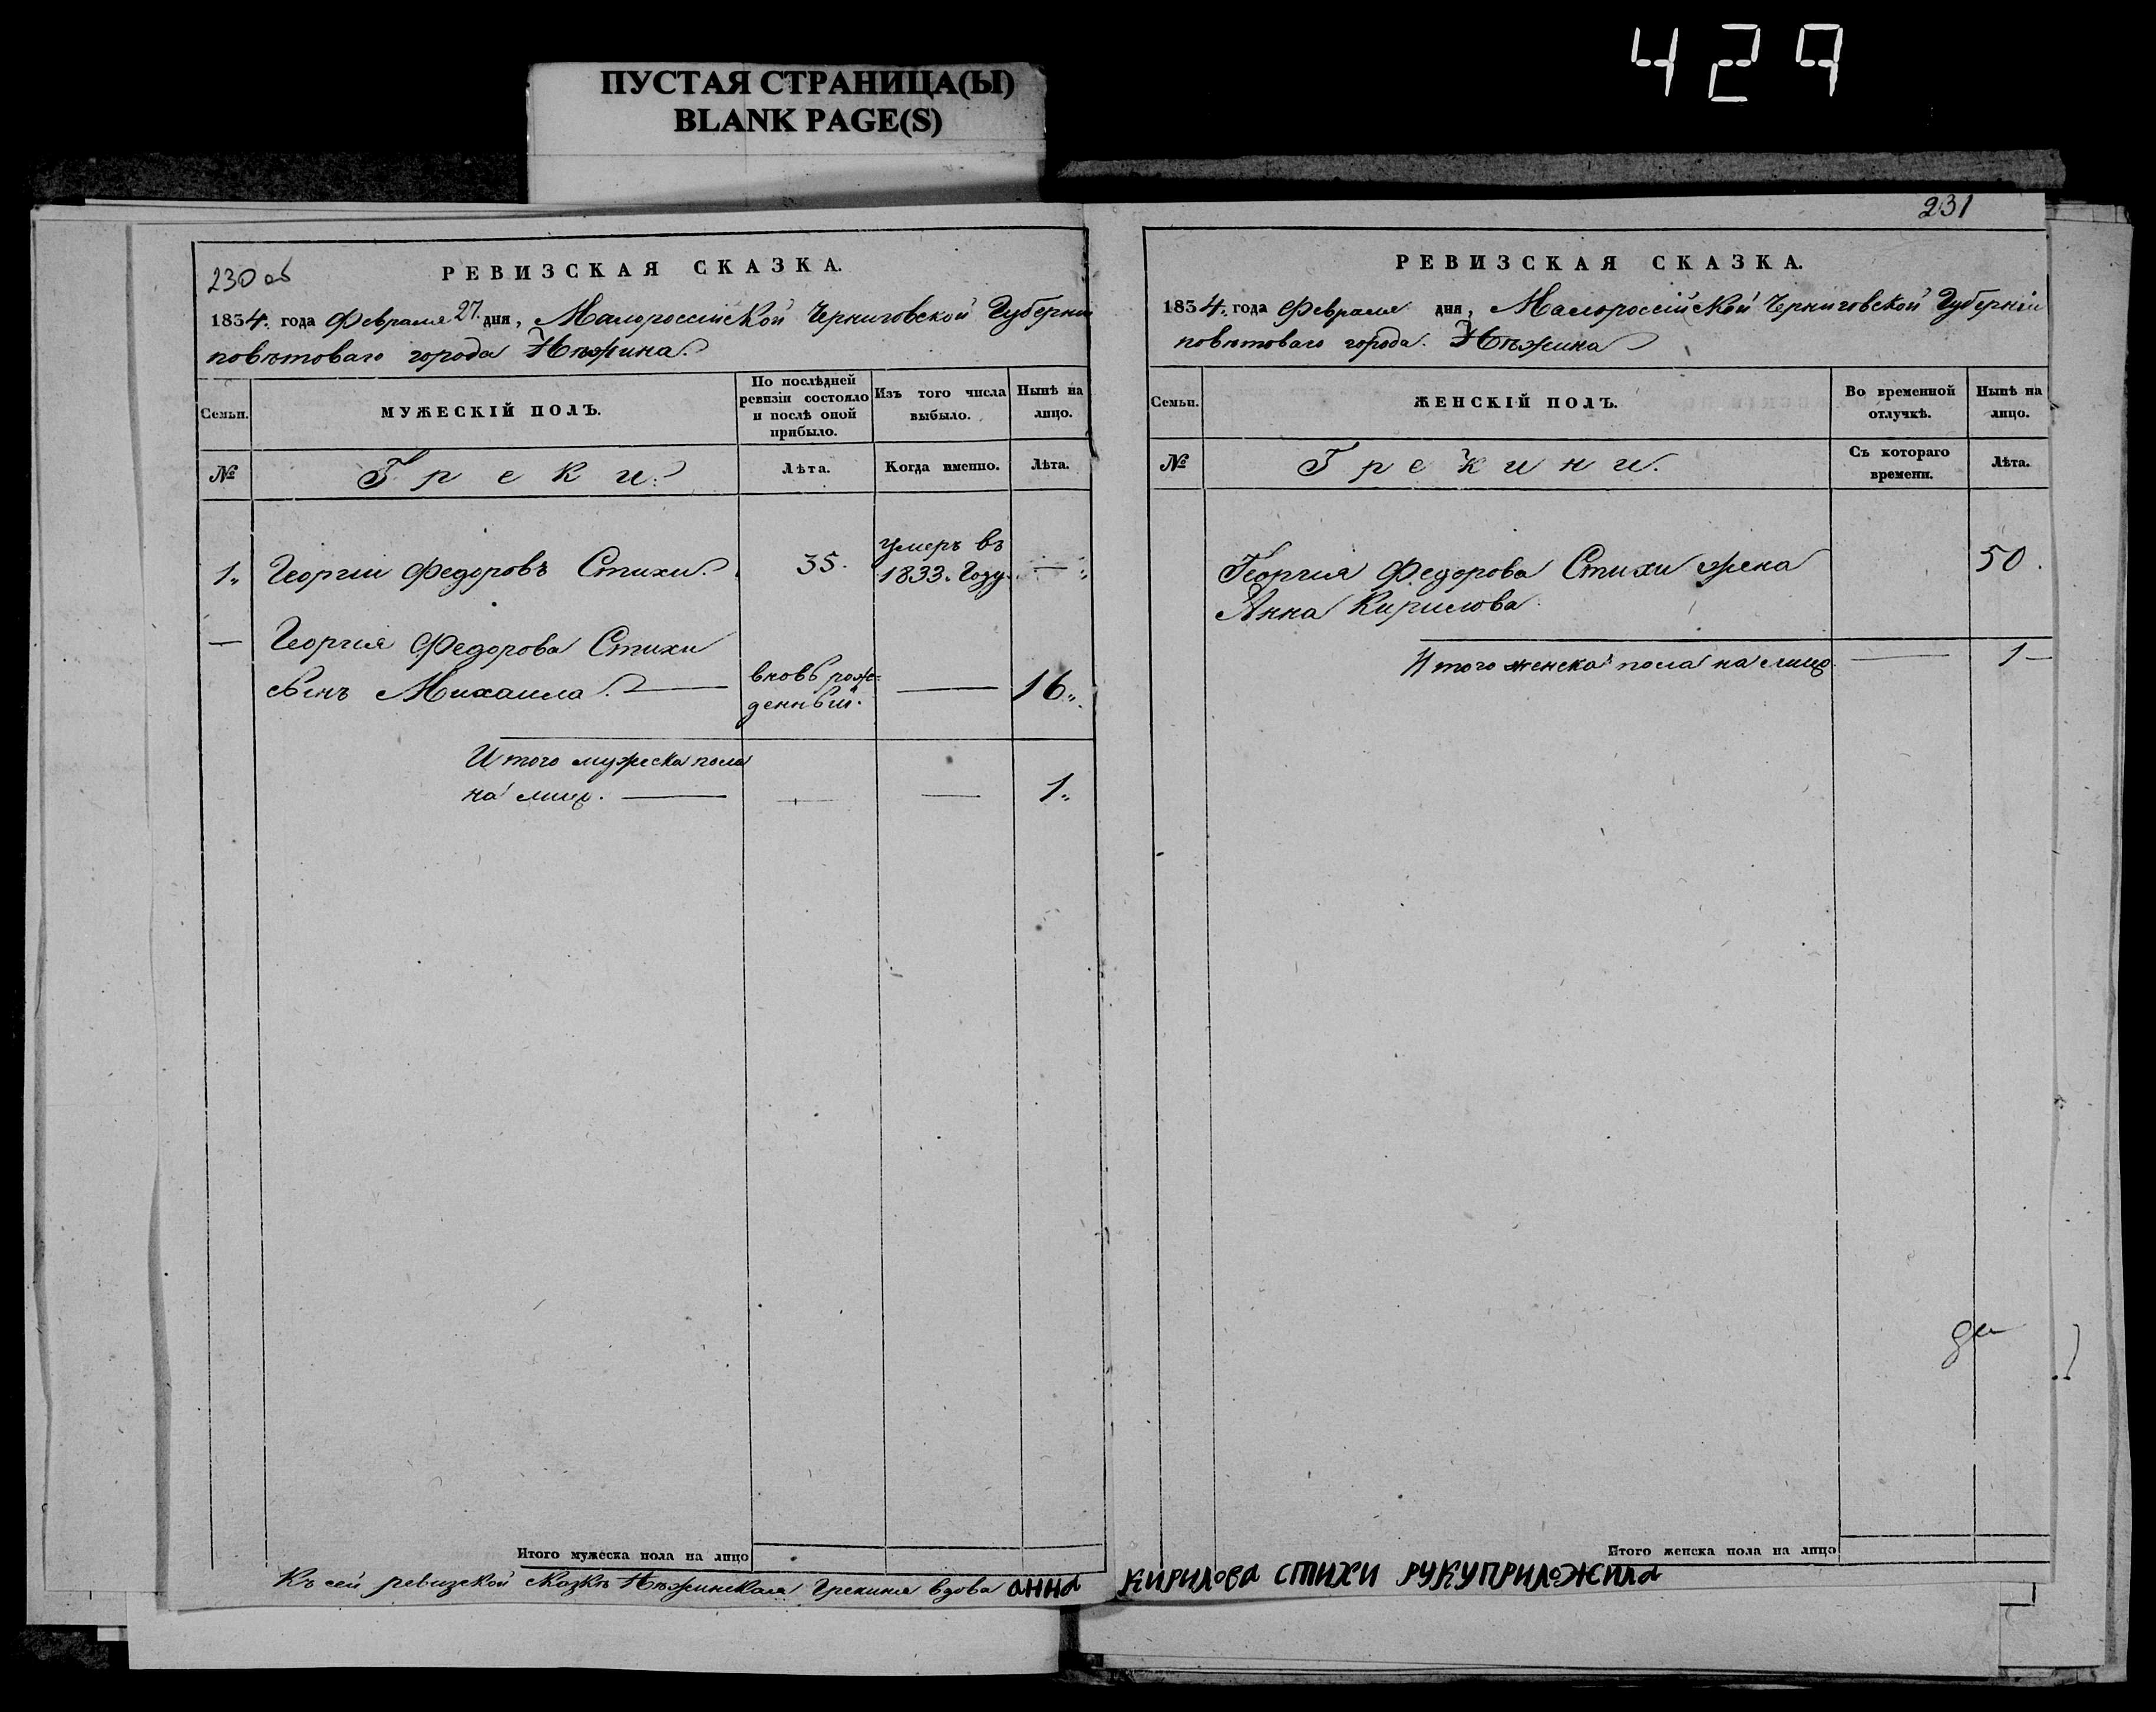 429
ПУСТАЯ СТРАНИЦА(Ы)
BLANK PAGE(S)
230 об
РЕВИЗСКАЯ СКАЗКА.
1834. года Февраля 27. дня, Малороссійской Черниговской Губерніи
повѣтоваго города Нѣжина.
Семьи.
МУЖЕСКІЙ ПОЛЪ.
По послѣдней ревизіи состояло и послѣ оной прибыло.
Изъ того числа выбыло.
Нынѣ на лицо.
№
Греки.
Лѣта.
Когда именно.
Лѣта.
1. Георгіи Федоровъ Стихи. 35. умеръ въ 1833. Году. —
— Георгія Федорова Стихи
сынъ Михаила. — вновь рожденный. — 16.
Итого мужеска пола
на лицо. — — — 1.
Итого мужеска пола на лицо
231
РЕВИЗСКАЯ СКАЗКА.
1834. года Февраля дня, Малороссійской Черниговской Губерніи
повѣтоваго города Нѣжина
Семьи.
ЖЕНСКІЙ ПОЛЪ.
Во временной отлучкѣ.
Нынѣ на лицо.
№
Грекини.
Съ котораго времени.
Лѣта.
Георгія Федорова Стихи жена 50.
Анна Кирилова
Итого женска пола на лицо — 1 —
Итого женска пола на лицо
Къ сей ревизской сказкѣ Нѣжинская Грекиня вдова анна кирилова стихи рукуприложила